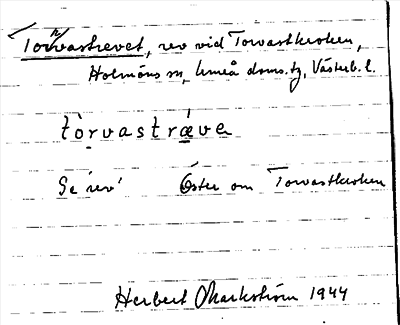 Torvastrevet, rev vid Torvastkroken,
Holmöns sn, Umeå doms. tg, Västerb. l.
tòrvastræ̀va
Se 'rev' Öster om Torvastkroken
Herbert Markström 1944